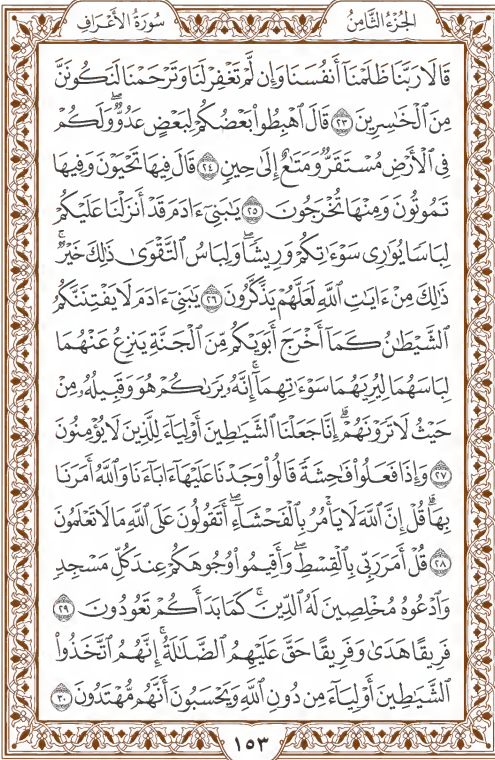 الجُزْءُ الثَّامِنُ
سُورَةُ الأَعْرَافِ
قَالَا رَبَّنَا ظَلَمْنَآ أَنفُسَنَا وَإِن لَّمْ تَغْفِرْ لَنَا وَتَرْحَمْنَا لَنَكُونَنَّ
مِنَ ٱلْخَٰسِرِينَ ٢٣ قَالَ ٱهْبِطُوا۟ بَعْضُكُمْ لِبَعْضٍ عَدُوٌّۖ وَلَكُمْ
فِى ٱلْأَرْضِ مُسْتَقَرٌّ وَمَتَٰعٌ إِلَىٰ حِينٍ ٢٤ قَالَ فِيهَا تَحْيَوْنَ وَفِيهَا
تَمُوتُونَ وَمِنْهَا تُخْرَجُونَ ٢٥ يَٰبَنِىٓ ءَادَمَ قَدْ أَنزَلْنَا عَلَيْكُمْ
لِبَاسًا يُوَٰرِى سَوْءَٰتِكُمْ وَرِيشًاۖ وَلِبَاسُ ٱلتَّقْوَىٰ ذَٰلِكَ خَيْرٌۚ
ذَٰلِكَ مِنْ ءَايَٰتِ ٱللَّهِ لَعَلَّهُمْ يَذَّكَّرُونَ ٢٦ يَٰبَنِىٓ ءَادَمَ لَا يَفْتِنَنَّكُمُ
ٱلشَّيْطَٰنُ كَمَآ أَخْرَجَ أَبَوَيْكُم مِّنَ ٱلْجَنَّةِ يَنزِعُ عَنْهُمَا
لِبَاسَهُمَا لِيُرِيَهُمَا سَوْءَٰتِهِمَآۚ إِنَّهُۥ يَرَىٰكُمْ هُوَ وَقَبِيلُهُۥ مِنْ
حَيْثُ لَا تَرَوْنَهُمْۗ إِنَّا جَعَلْنَا ٱلشَّيَٰطِينَ أَوْلِيَآءَ لِلَّذِينَ لَا يُؤْمِنُونَ
٢٧ وَإِذَا فَعَلُوا۟ فَٰحِشَةً قَالُوا۟ وَجَدْنَا عَلَيْهَآ ءَابَآءَنَا وَٱللَّهُ أَمَرَنَا
بِهَاۗ قُلْ إِنَّ ٱللَّهَ لَا يَأْمُرُ بِٱلْفَحْشَآءِۖ أَتَقُولُونَ عَلَى ٱللَّهِ مَا لَا تَعْلَمُونَ
٢٨ قُلْ أَمَرَ رَبِّى بِٱلْقِسْطِۖ وَأَقِيمُوا۟ وُجُوهَكُمْ عِندَ كُلِّ مَسْجِدٍ
وَٱدْعُوهُ مُخْلِصِينَ لَهُ ٱلدِّينَۚ كَمَا بَدَأَكُمْ تَعُودُونَ ٢٩
فَرِيقًا هَدَىٰ وَفَرِيقًا حَقَّ عَلَيْهِمُ ٱلضَّلَٰلَةُۗ إِنَّهُمُ ٱتَّخَذُوا۟
ٱلشَّيَٰطِينَ أَوْلِيَآءَ مِن دُونِ ٱللَّهِ وَيَحْسَبُونَ أَنَّهُم مُّهْتَدُونَ ٣٠
١٥٣